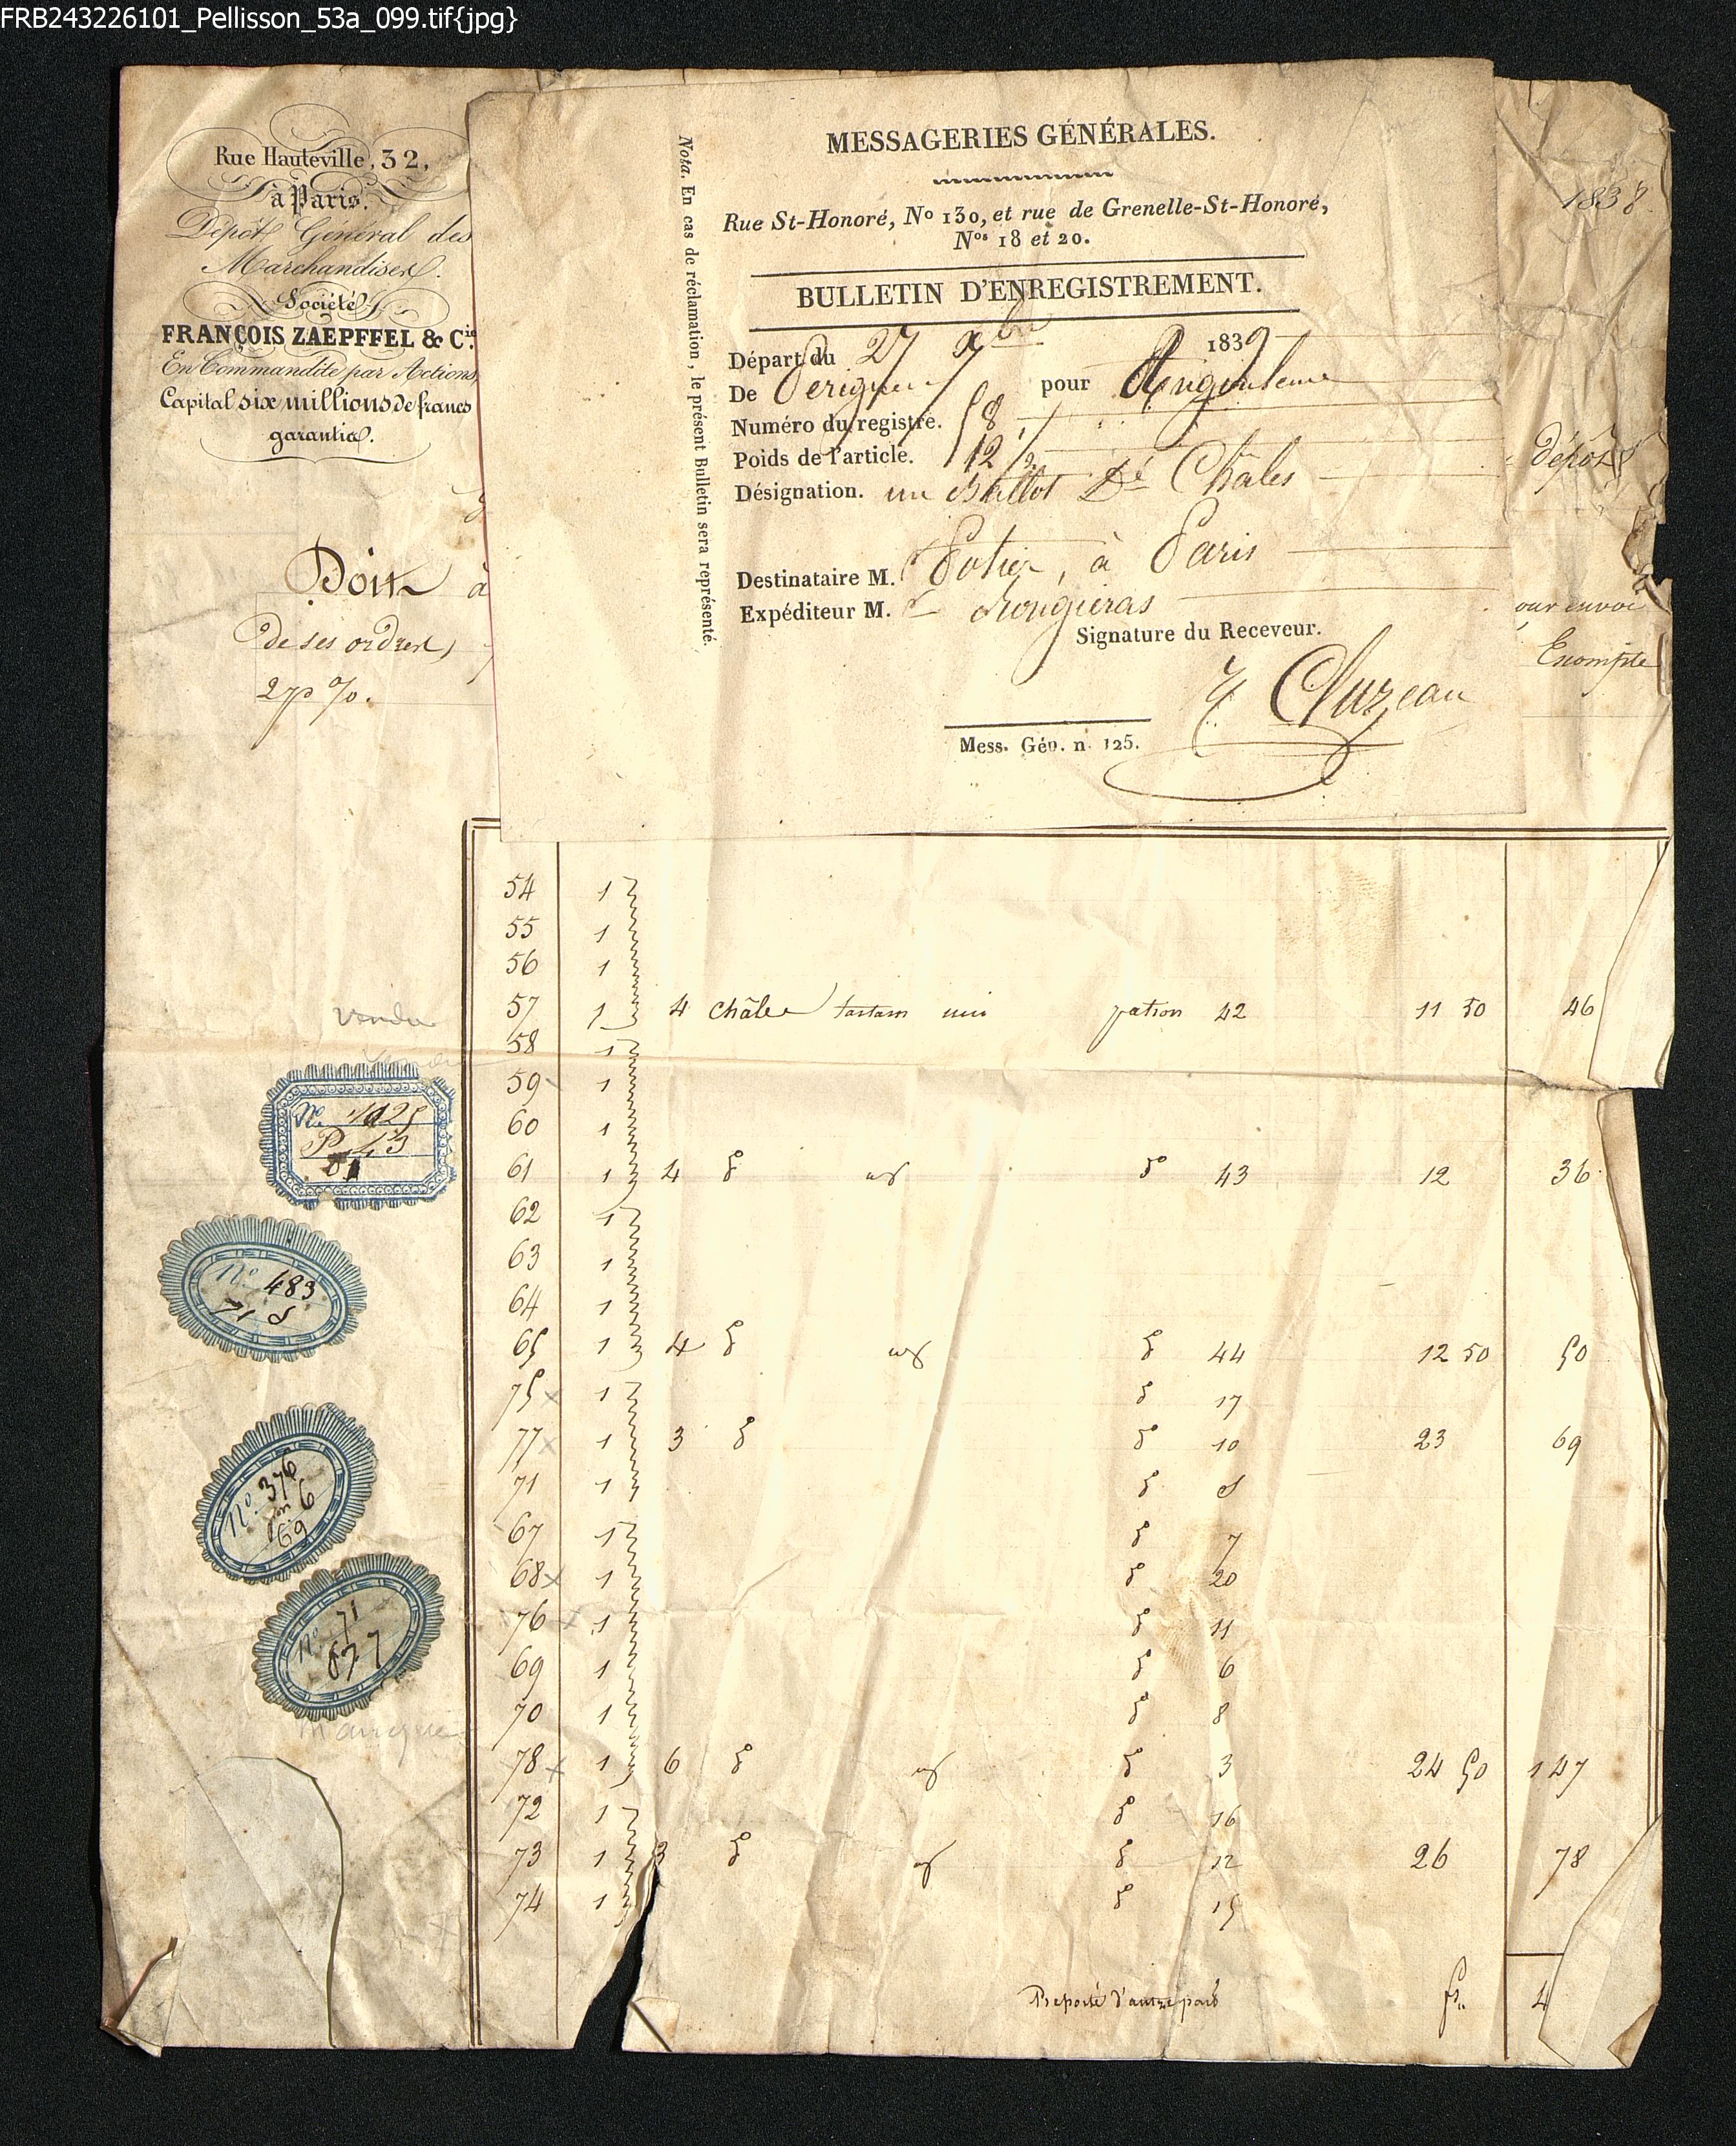 FRB243226101_Pellisson_53a_099.tif{jpg}
Rue Hauteville, 32,
à Paris.
Dépôt Général des
Marchandises.
Société
FRANÇOIS ZAEPFFEL & Cie.
En Commandite par Actions,
Capital six millions de francs
garantis.
1838
dépôt
Doit à
de ses ordres,
our envoi
Escompte
MESSAGERIES GÉNÉRALES.
Rue St-Honoré, No 130, et rue de Grenelle-St-Honoré,
Nos 18 et 20.
BULLETIN D'ENREGISTREMENT.
Départ du 27 Xbre 1839
De Perigueux pour Angouleme
Numéro du registre. 58
Poids de l'article. 12 1/2
Désignation. un Ballot De Châles
Destinataire M. Potier, à Paris
Expéditeur M. Rongieras
Signature du Receveur.
Cluzeau
Mess. Gén. n. 125.
Nota. En cas de réclamation, le présent Bulletin sera représenté.
54 1
55 1
56 1
57 1 4 châles tartan uni patron 42 11 50 46
58 1
59 1
60 1
61 1 4 do do 43 12 36
62 1
63 1
64 1
65 1 4 do do 44 12 50 50
75 x 1 do 17
77 x 1 3 do do 10 23 69
71 1 do
67 1 do 7
68 x 1 do 20
76 x 1 do 11
69 1 do 6
70 1 do 8
78 x 1 6 do do 3 24 50 147
72 1 do 16
73 1 3 do do 12 26 78
74 1 do 15
Reporté d'autre part fr. 4
vendu
No. 1025
P. 43
No 483
71
No. 376
6
69
No. 71
67 7
Manque